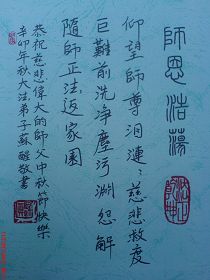 師恩浩蕩
仰望師尊泪漣〻慈悲救度
巨難前洗净塵污淵怨解
隨師正法返家園
恭祝慈悲偉大的師父中秋節快樂
辛卯年秋大法弟子蘇醒敬書